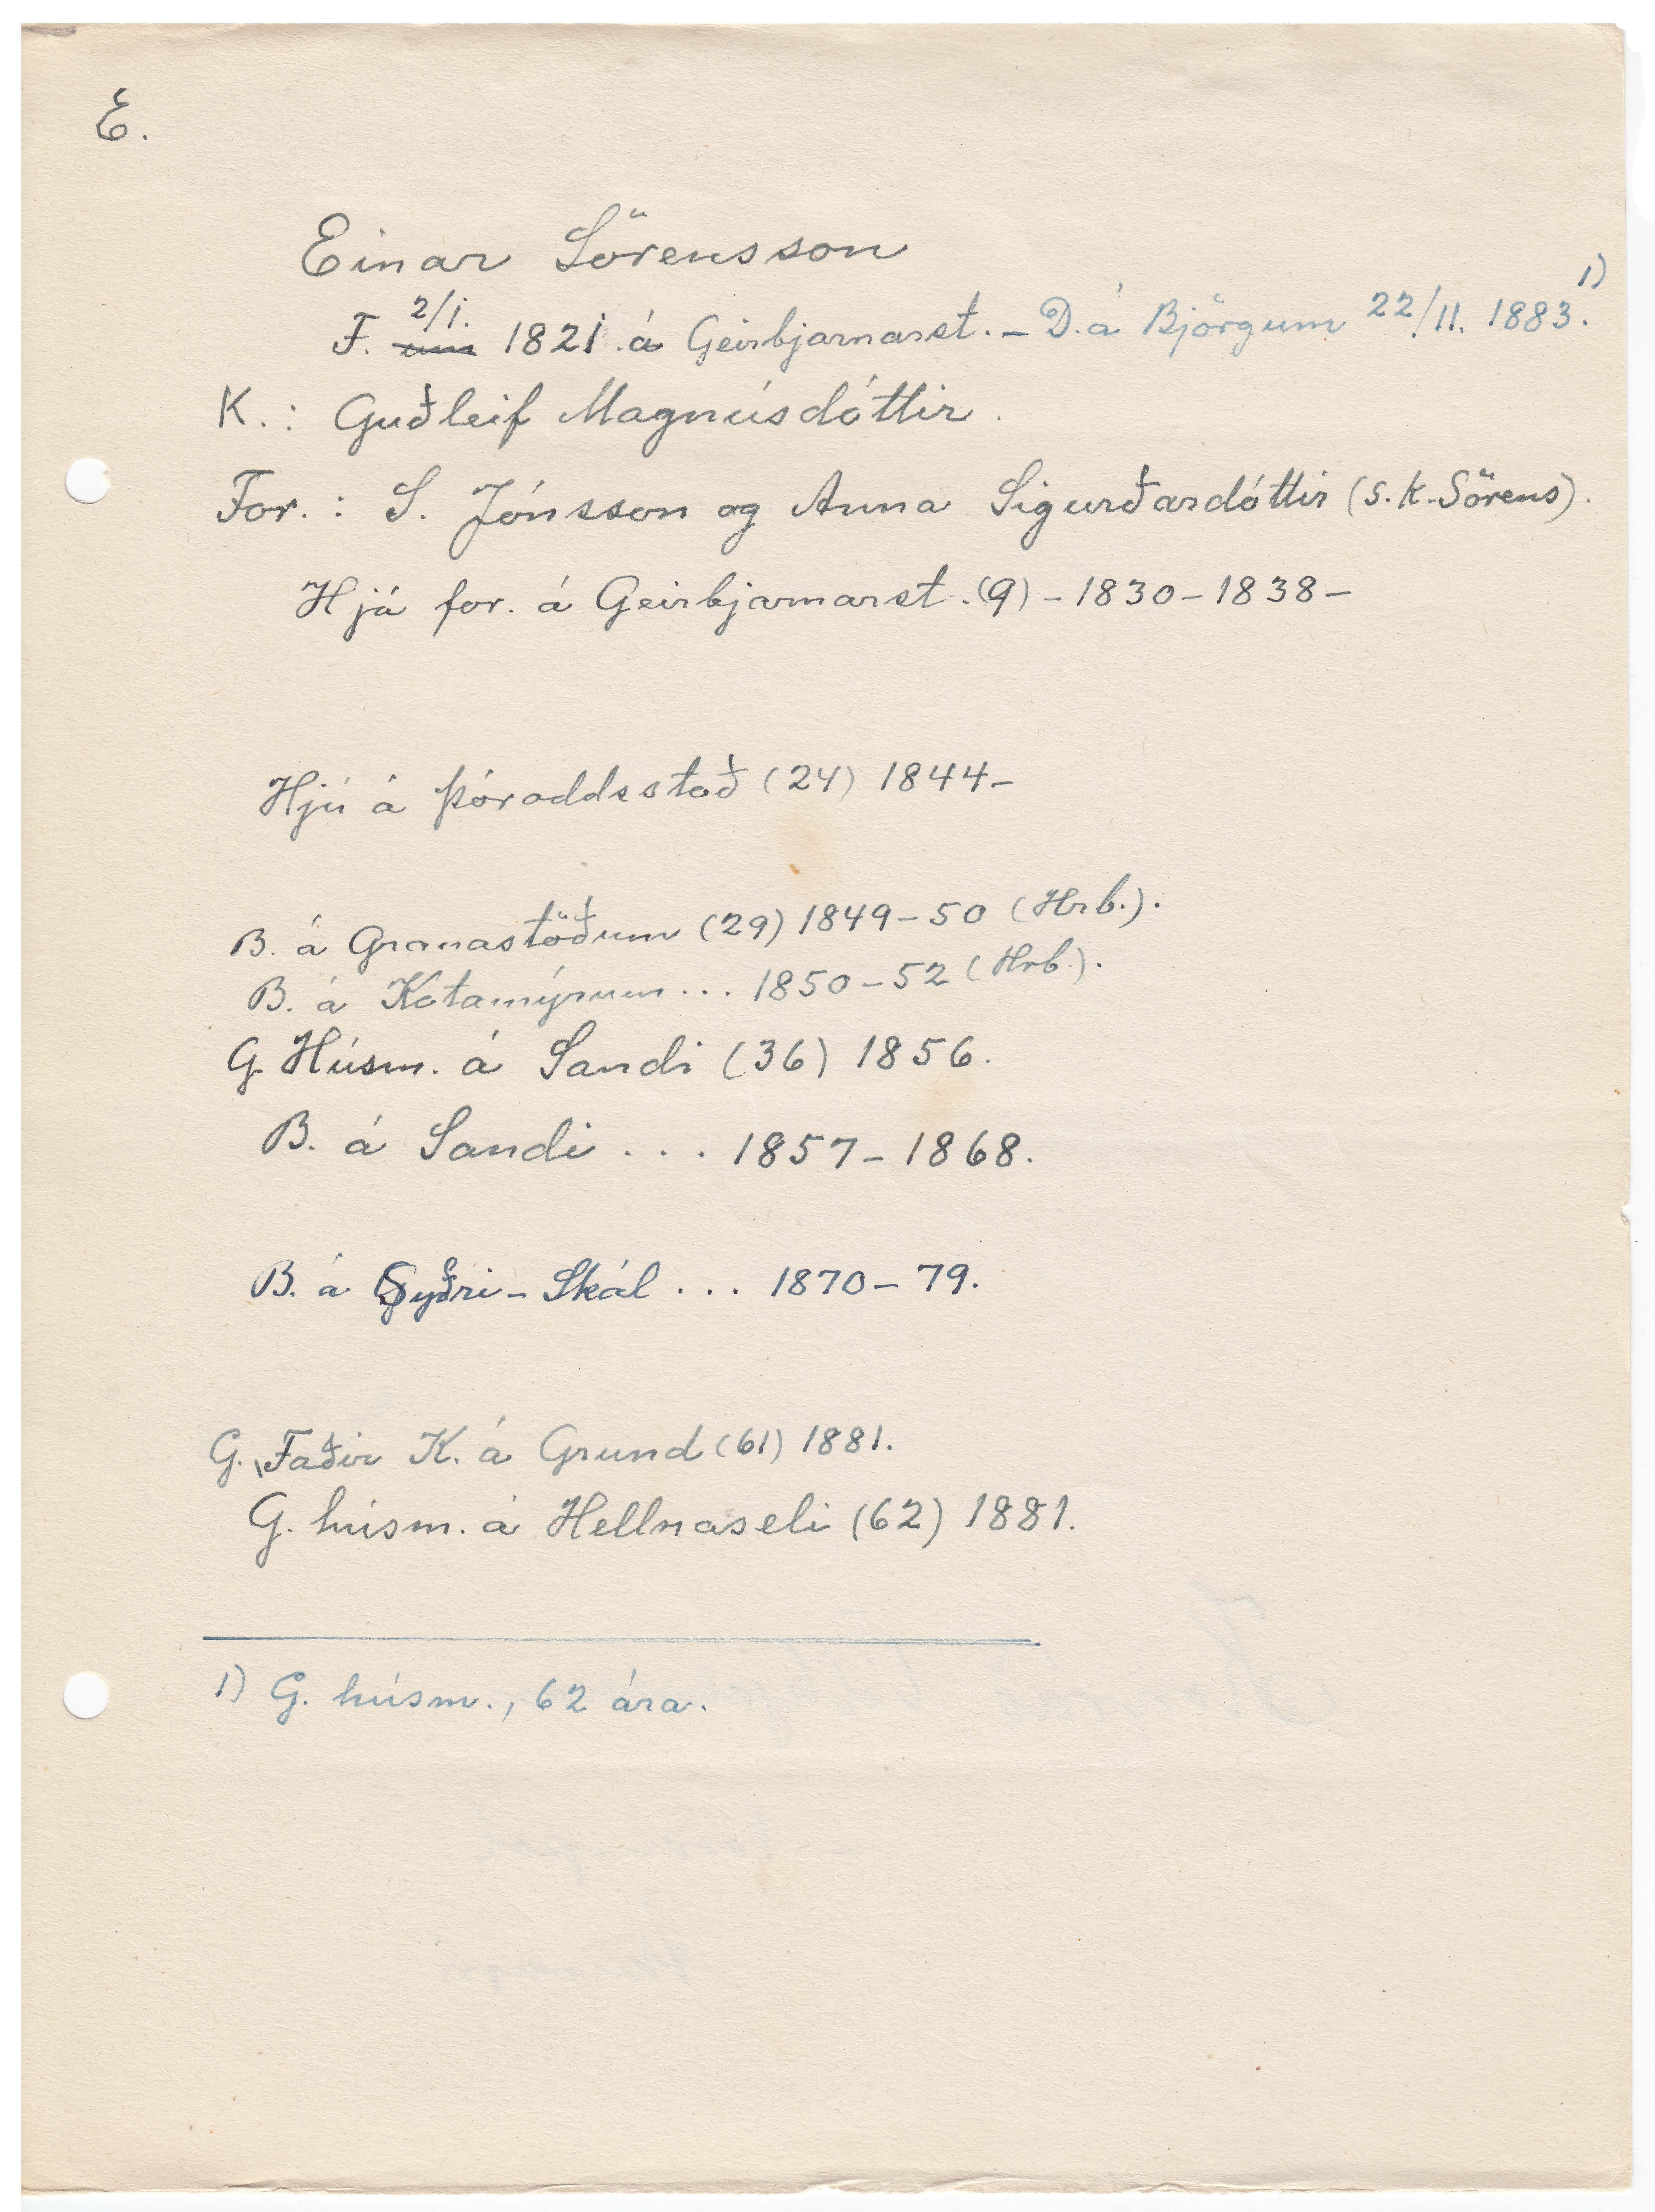 E.
Einar Sörensson
F. 2/1. um 1821. á Geirbjarnarst. - D. á Björgum 22/11. 1883. 1)
K. : Guðleif Magnúsdóttir.
For. : S. Jónsson og Anna Sigurðardóttir (s. k. Sörens).
Hjá for. á Geirbjarnarst. (9) - 1830 - 1838 -
Hjú á Þóroddsstað (24) 1844 -
B. á Granastöðum (29) 1849 - 50 (Hrb.).
B. á Kotamýrum ... 1850 - 52 (Hrb.).
G. Húsm. á Sandi (36) 1856.
B. á Sandi ... 1857 - 1868.
B. á Syðri - Skál ... 1870 - 79.
G. Faðir K. á Grund (61) 1881.
G. húsm. á Hellnaseli (62) 1881.
1) G. húsm., 62 ára.